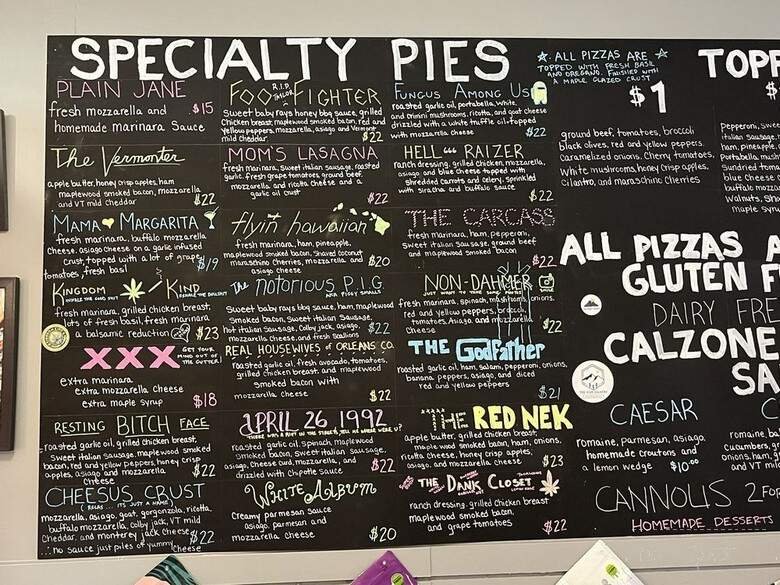 SPECIALTY PIES
PLAIN JANE
fresh mozzarella and $15
homemade marinara Sauce
The Vermonter
apple butter, honey crisp apples, ham
maplewood smoked bacon, mozzarella
and VT mild cheddar $22
MAMA MARGARITA
fresh marinara, buffalo mozzarella
Cheese asiago cheese on a garlic infused
Crust, topped with a lot of grape
tomatoes, fresh basil $19
KINGDOM KIND
fresh marinara, grilled chicken breast,
lots of fresh basil, fresh marinara
a balsamic reduction $23
XXX GET YOUR MIND OUT OF THE GUTTER!
extra marinara
extra mozzarella cheese
extra maple syrup $18
RESTING BITCH FACE
roasted garlic oil, grilled chicken breast,
Sweet italian Sausage, maplewood smoked
bacon, red and yellow peppers, honey crisp
apples, asiago and mozzarella
cheese $22
CHEESUS CRUST
(RELAX... ITS JUST A NAME)
mozzarella, asiago, goat, gorgonzola, ricotta,
buffalo mozzarella, colby jack, VT mild
Cheddar, and monterey jack cheese $22
...no sauce just piles of yummy cheese
FOO FIGHTER
R.I.P. TAYLOR
Sweet baby rays honey bbq sauce, grilled
Chicken breast, maplewood smoked bacon, red and
yellow peppers, mozzarella, asiago and Vermont
mild Cheddar $22
MOM'S LASAGNA
fresh marinara, Sweet italian Sausage, roasted
garlic, fresh grape tomatoes ground beef,
mozzarella, and ricotta Cheese and a
garlic oil crust $22
flyin hawaiian
fresh marinara, ham, pineapple,
maplewood smoked bacon, shaved coconut
maraschino cherries, mozzarella, and $20
asiago cheese
The NOTORIOUS P.I.G.
AKA PIGGY SMALLS
Sweet baby rays bbq sauce, ham, maplewood
smoked bacon, Sweet italian Sausage,
hot italian Sausage, Colby jack, asiago,
mozzarella Cheese, and fresh Scallions $22
REAL HOUSEWIVES of ORLEANS CO.
roasted garlic oil, fresh avocado, tomatoes,
grilled chicken breast, and maplewood
Smoked bacon with
mozzarella cheese $22
APRIL 26, 1992
THERE WAS A RIOT IN THE STREETS, TELL ME WHERE WERE U?
roasted garlic oil, Spinach, maplewood
smoked bacon, sweet italian sausage,
asiago, Cheese curd, mozzarella, and
drizzled with Chipotle Sauce $22
White Album
Creamy parmesan Sauce
asiago, parmesan and
mozzarella cheese $20
FUNGUS AMONG US
roasted garlic oil, portabella, white,
and crimini mushrooms, ricotta, and goat cheese
drizzled with a white truffle oil-topped
with mozzarella cheese $22
HELL RAIZER
ranch dressing, grilled chicken, mozzarella,
asiago and blue cheese topped with
Shredded carrots and celery, Sprinkled
with Siracha and buffalo Sauce $22
THE CARCASS
fresh marinara, ham, pepperoni,
Sweet italian Sausage, ground beef
and maplewood smoked bacon $22
NON-DAHMER
fresh marinara, spinach, mushrooms, onions,
red and yellow peppers, broccoli,
tomatoes, Asiago, and mozzarella
Cheese $22
THE Godfather
roasted garlic oil, ham, salami, pepperoni, onions,
banana peppers, asiago, and diced
red and yellow peppers $21
THE RED NEK
apple butter, grilled chicken breast,
maplewood smoked bacon, ham, onions,
ricotta Cheese, honey crisp apples,
asiago, and mozzarella cheese. $23
THE DANK CLOSET
ranch dressing, grilled chicken breast
maplewood smoked bacon,
and grape tomatoes $22
ALL PIZZAS ARE
TOPPED WITH FRESH BASIL
AND OREGANO. FINISHED WITH
A MAPLE GLAZED CRUST
TOPP
$1
ground beef, tomatoes, broccoli
black olives, red and yellow peppers,
Caramelized onions, Cherry tomatoes,
White mushrooms, honey crisp apples,
Cilantro, and maraschino Cherries
$
Pepperoni, swee
italian Sausage,
ham, pineapple,
Portabella, mush
Sundried toma
blue Cheese
buffalo mozz
Walnuts, Sha
maple syru
ALL PIZZAS A
GLUTEN F
DAIRY FRE
CALZONE
SA
CAESAR
romaine, Parmesan, asiago
homemade croutons and
a lemon wedge $10.00
C
romaine, ba
Cucumbers, gr
onions, ham, g
and VT mil
CANNOLIS 2 Fo
HOMEMADE DESSERTS